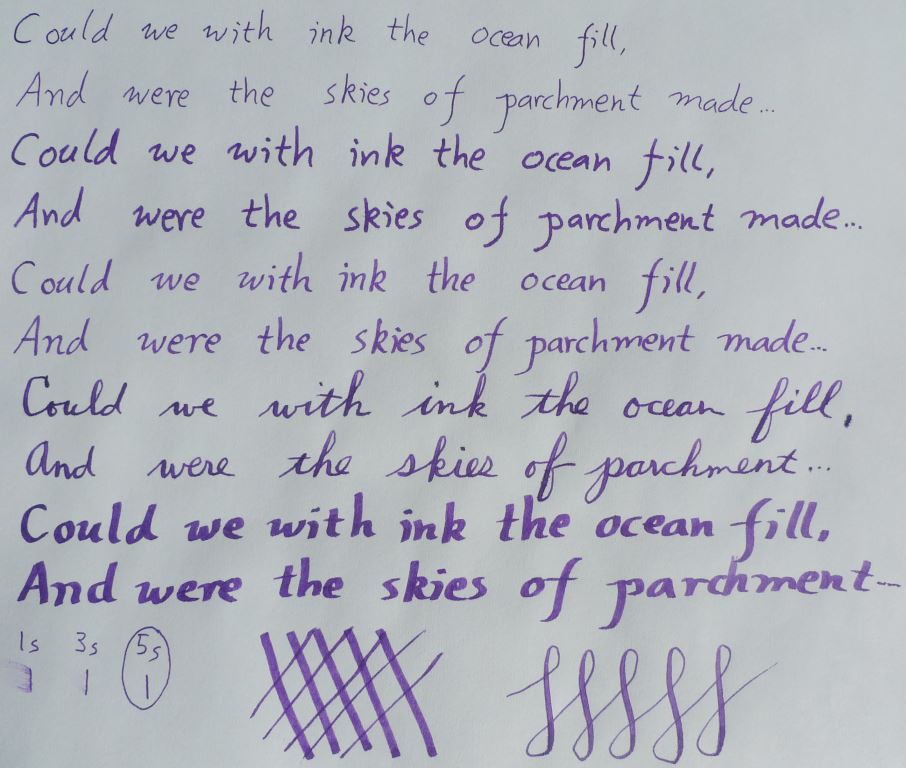 Could we with ink the ocean fill,
And were the skies of parchment made...
Could we with ink the ocean fill,
And were the skies of parchment made...
Could we with ink the ocean fill,
And were the skies of parchment made...
Could we with ink the ocean fill,
And were the skies of parchment...
Could we with ink the ocean fill,
And were the skies of parchment...
1s 3s 5s